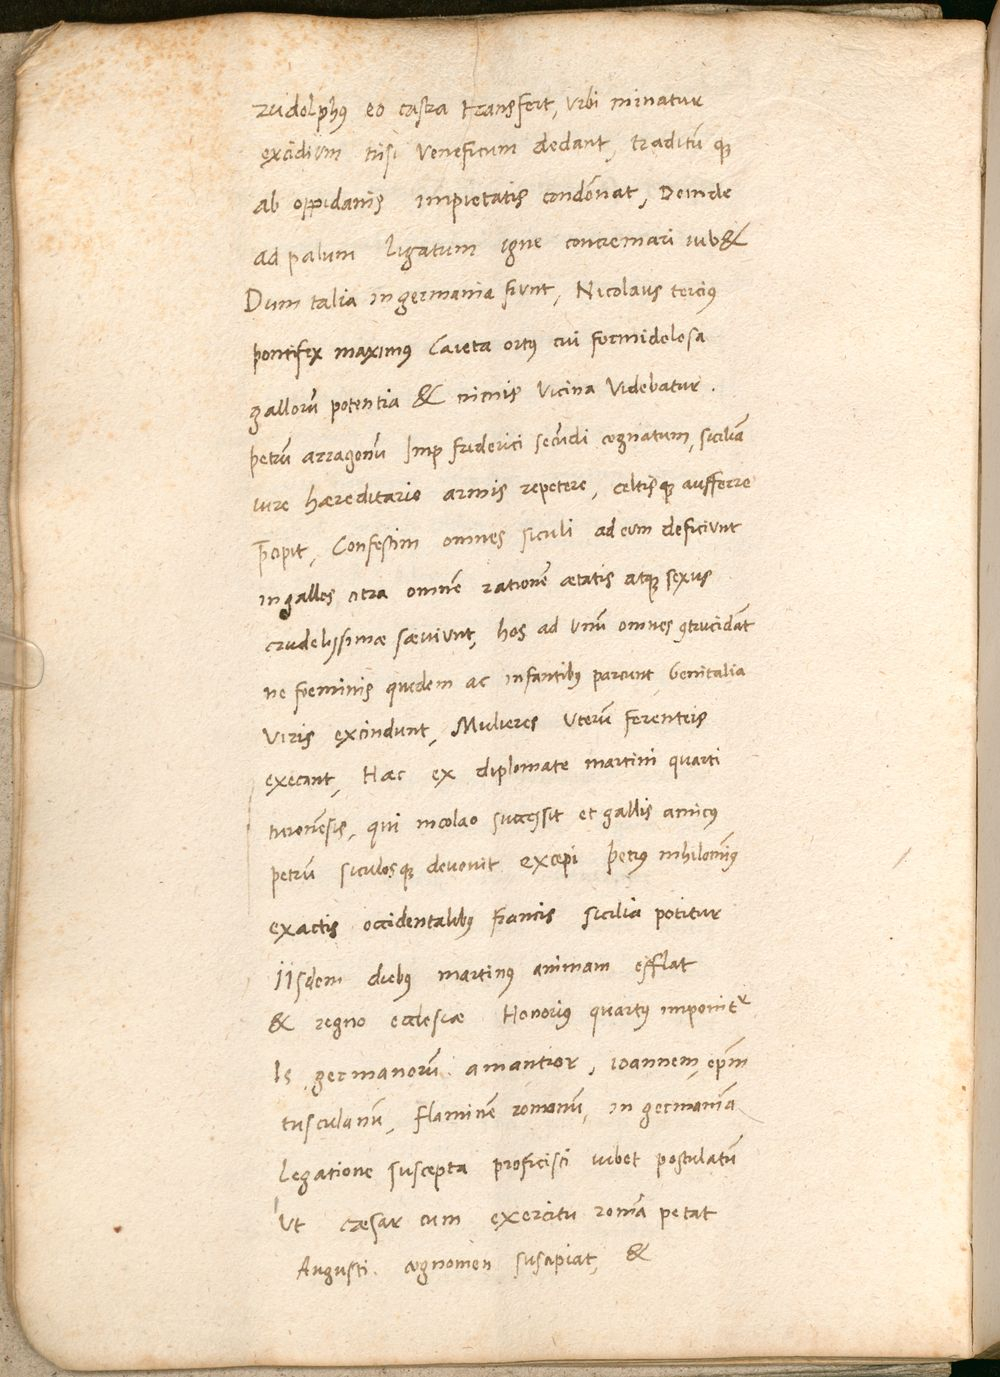 rudolphꝰ eo castra transfert, vrbi minatur
excidium nisi veneficum dedant, traditū ꝙ
ab oppidanis impietatis condēnat, Deinde
ad palum ligatum igne concremari iub&
Dum talia in germania fiunt, Nicolaus terciꝰ
pontifex maximꝰ Caieta ortꝰ cui formidolosa
gallorū potentia & nimis vicina videbatur.
petrū arragonū Imp friderici secūdi cognatum, siciliā
iure hæreditario armis repetere, celtisꝙ aufferre
p̄cipit, Confestim omnes siculi ad eum deficiunt
in gallos citra omnē rationē ætatis atꝙ sexus
crudelissimæ sæviunt, hos ad vnū omnes ꝯtrucidāt
ne foeminis quedem ac infantibꝰ parcunt, Genitalia
viris excindunt, Mulieres vterū ferenteis
execant, Hæc ex diplomate martini quarti
turonēsis, qui nicolao successit et gallis amicꝰ
petrū siculosꝙ devovit excepi petrꝰ nihilomīꝰ
exactis occidentalibꝰ francis sicilia potitur
IIsdem diebꝰ martinꝰ animam efflat
& regno ecclesiæ Honoriꝰ quartꝰ imponitʳ
Is germanorū amantior, ioannem, ep̄m
tusculanū, flaminē romanū, in germaniā
legatione suscepta proficisci iubet postulatū
Ut cæsar cum exercitu romā petat
Augusti cognomen suscipiat, &